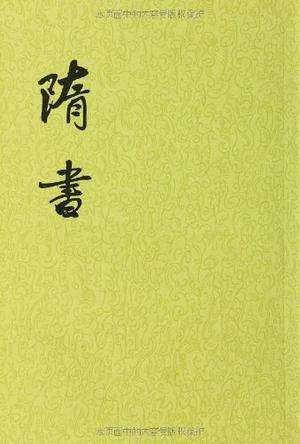 本页面中的内容受版权保护
隋
書
本页面中的内容受版权保护